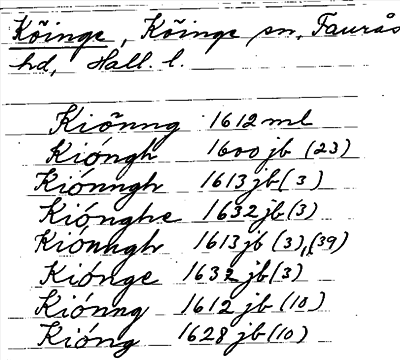 Köinge, Köinge sn, Faurås
hd, Hall. l.
Kiönng 1612 ml
Kióngh 1600 jb (23)
Kiónngh 1613 jb (3)
Kiónghe 1632 jb (3)
Kiónngh 1613 jb (3), (39)
Kiónge 1632 jb (3)
Kiónng 1612 jb (10)
Kióng 1628 jb (10)